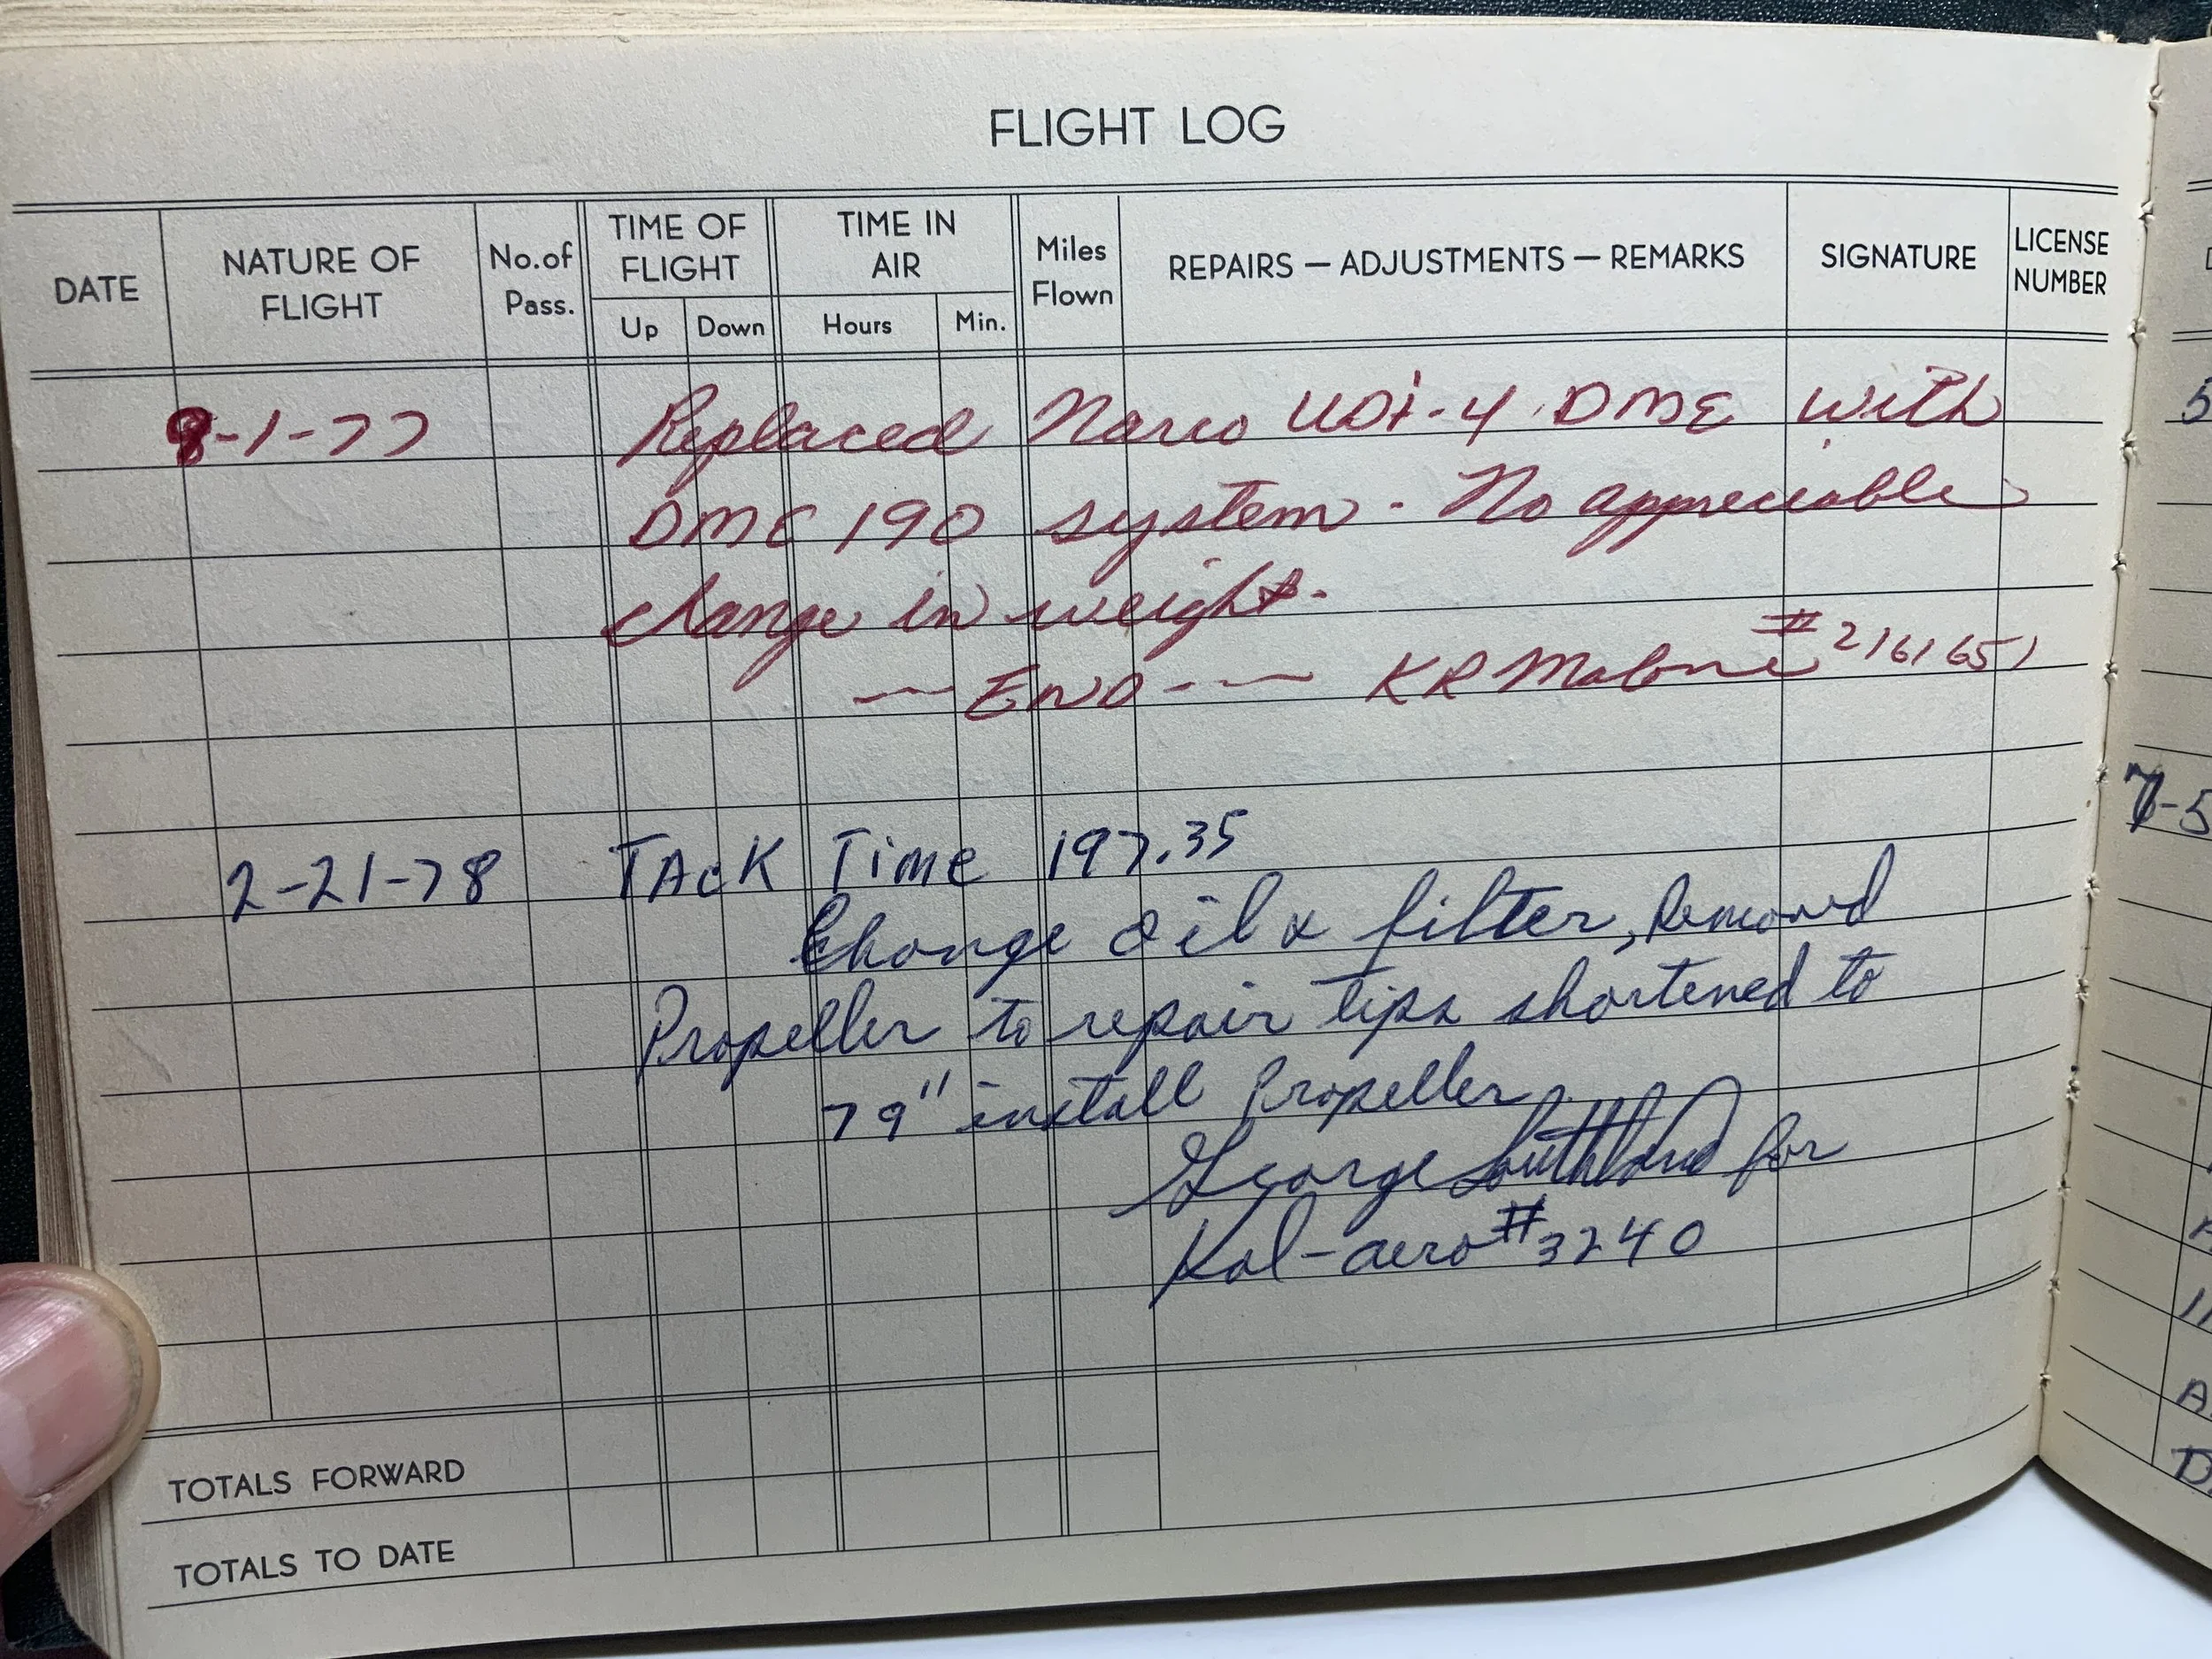 FLIGHT LOG
DATE NATURE OF FLIGHT No. of Pass. TIME OF FLIGHT Up Down TIME IN AIR Hours Min. Miles Flown REPAIRS — ADJUSTMENTS — REMARKS SIGNATURE LICENSE NUMBER
8-1-77 Replaced Narco UDI-4 DME with
DME 190 system - No appreciable
change in weight.
—— END —— KR Malone # 2161651
2-21-78 TAcK TiMe 197.35
Change oil & filter, Removed
Propeller to repair tips shortened to
79" install Propeller
George Southland for
Kal-aero #3240
TOTALS FORWARD
TOTALS TO DATE
5
7-5
A
11
A
D